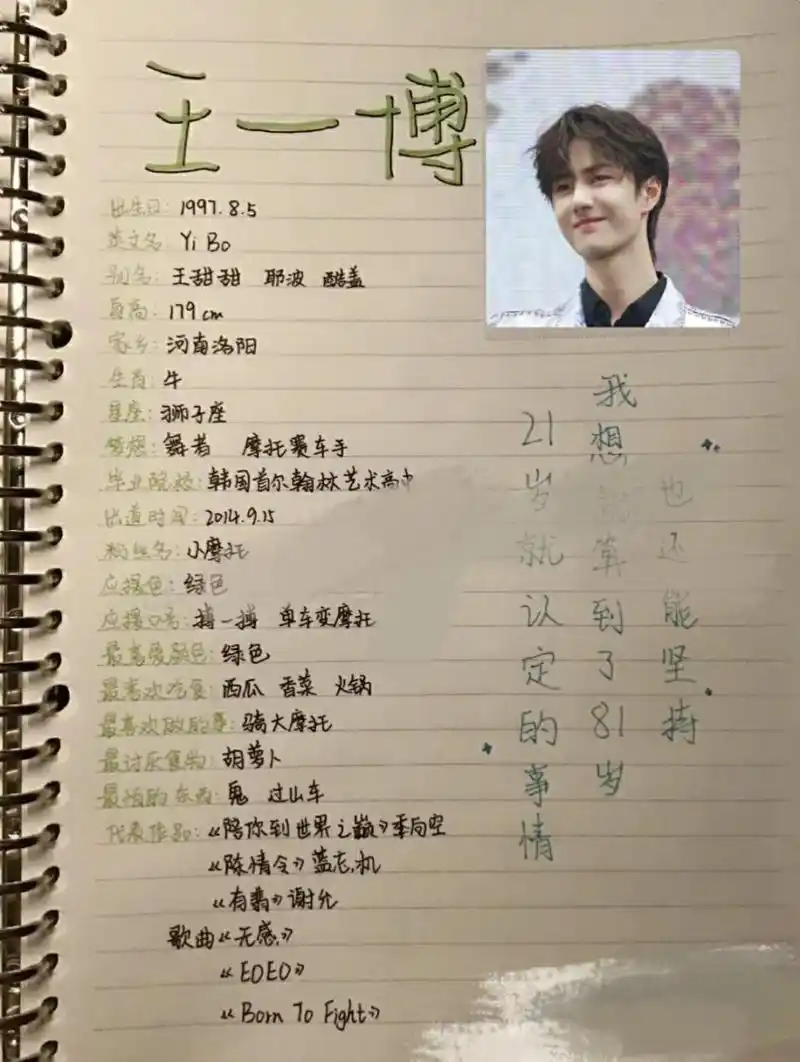 王一博
出生日: 1997.8.5
英文名: Yi Bo
别名: 王甜甜 耶波 酷盖
身高: 179cm
家乡: 河南洛阳
生肖: 牛
星座: 狮子座
梦想: 舞者 摩托赛车手
毕业院校: 韩国首尔翰林艺术高中
出道时间: 2014.9.15
粉丝名: 小摩托
应援色: 绿色
应援口号: 搏一搏 单车变摩托
最喜爱颜色: 绿色
最喜欢吃食: 西瓜 香菜 火锅
最喜欢做的事: 骑大摩托
最讨厌食物: 胡萝卜
最怕的东西: 鬼 过山车
代表作品: 《陪你到世界之巅》季向空
《陈情令》蓝忘机
《有翡》谢允
歌曲《无感》
《EOEO》
《Born To Fight》
21岁就认定的事情
我想就算到了81岁
也还能坚持